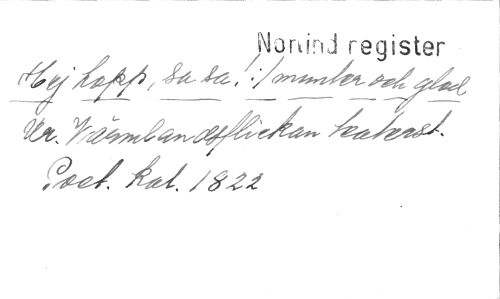 Nomind register
Hej hopp, sa sa! :/ munter och glad
Ur. Värmlandsflickan teaterst.
Poet. kal. 1822